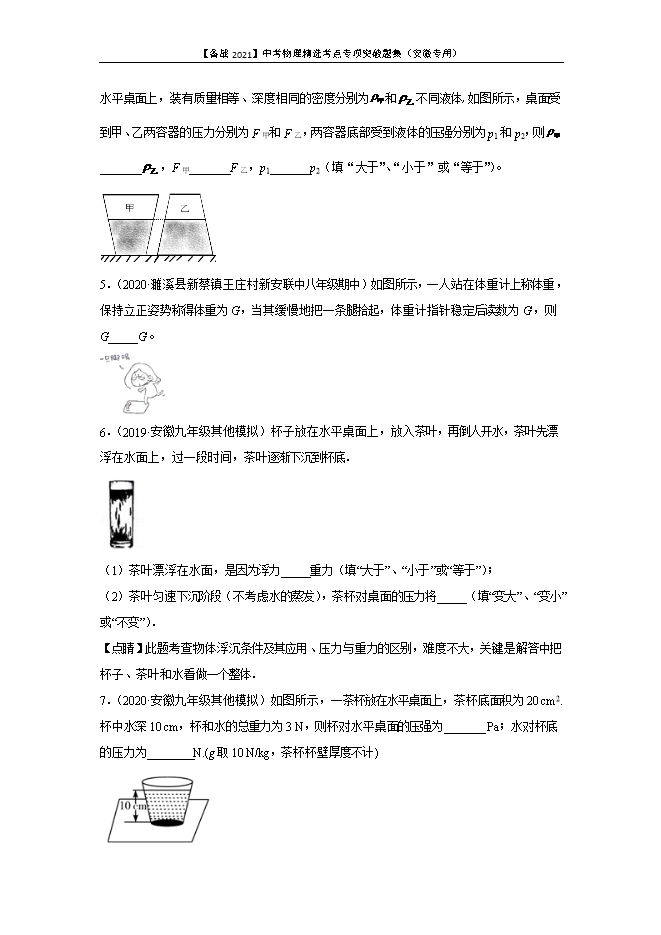 【备战2021】中考物理精选考点专项突破题集（安徽专用）
水平桌面上，装有质量相等、深度相同的密度分别为ρ甲和ρ乙不同液体,如图所示，桌面受
到甲、乙两容器的压力分别为F甲和F乙，两容器底部受到液体的压强分别为p1和p2，则ρ甲
_______ρ乙，F甲_______F乙，p1_______p2（填“大于”、“小于”或“等于”）。
甲 乙
5.（2020·濉溪县新蔡镇王庄村新安联中八年级期中）如图所示，一人站在体重计上称体重，
保持立正姿势称得体重为G，当其缓慢地把一条腿抬起，体重计指针稳定后读数为G，则
G_____G。
6.（2019·安徽九年级其他模拟）杯子放在水平桌面上，放入茶叶，再倒人开水，茶叶先漂
浮在水面上，过一段时间，茶叶逐渐下沉到杯底.
（1）茶叶漂浮在水面，是因为浮力_____重力（填“大于”、“小于”或“等于”）；
（2）茶叶匀速下沉阶段（不考虑水的蒸发），茶杯对桌面的压力将_____（填“变大”、“变小”
或“不变”）.
【点睛】此题考查物体浮沉条件及其应用、压力与重力的区别，难度不大，关键是解答中把
杯子、茶叶和水看做一个整体.
7.（2020·安徽九年级其他模拟）如图所示，一茶杯放在水平桌面上，茶杯底面积为20 cm².
杯中水深10 cm，杯和水的总重力为3 N，则杯对水平桌面的压强为_______Pa；水对杯底
的压力为________N.(g取10 N/kg，茶杯杯壁厚度不计)
10 cm